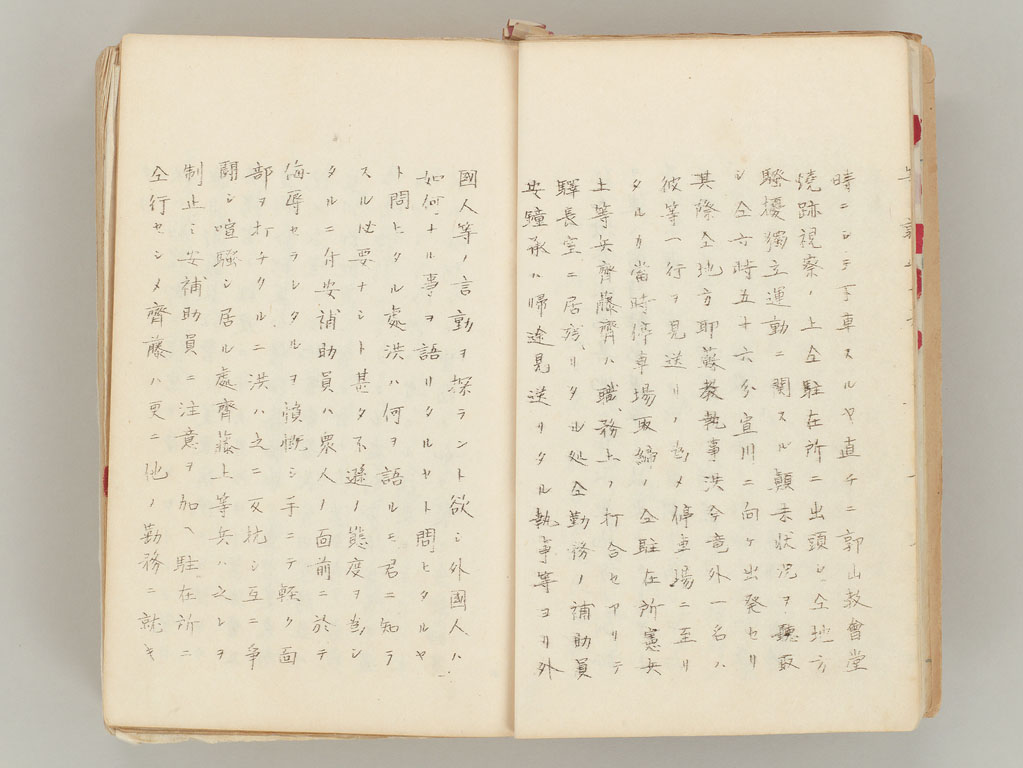 時ニシテ下車スルヤ直チニ郭山教會堂
燒跡視察ノ上仝駐在所ニ出頭シ仝地方
騷擾獨立運動ニ関スル顛末狀況ヲ聽取
シ仝六時五十六分宣川ニ向ケ出発セリ
其際仝地方耶蘇教執事洪今竜外一名ハ
彼等一行ヲ見送リノ為メ停車場ニ至リ
タルカ當時停車場取締ノ仝駐在所憲兵
上等兵齊藤齊ハ職務上ノ打合セアリテ
驛長室ニ居残リタル処仝勤務ノ補助員
安鐘承ハ帰途見送リタル執事等ヨリ外
國人等ノ言動ヲ探ラント欲シ外國人ハ
如何ナル事ヲ語リタルヤト問ヒタルヤ
ト問ヒタル處洪ハ何ヲ語ルモ君ニ知ラ
スル必要ナシト甚タ不遜ノ態度ヲ為シ
タルニ付安補助員ハ衆人ノ面前ニ於テ
侮辱セラレタルヲ憤慨シ手ニテ軽ク面
部ヲ打チタルニ洪ハ之ニ反抗シ互ニ爭
鬪シ喧騷シ居ル處齊藤上等兵ハ之レヲ
制止シ安補助員ニ注意ヲ加ヘ駐在所ニ
仝行セシメ齊藤ハ更ニ他ノ勤務ニ就キ